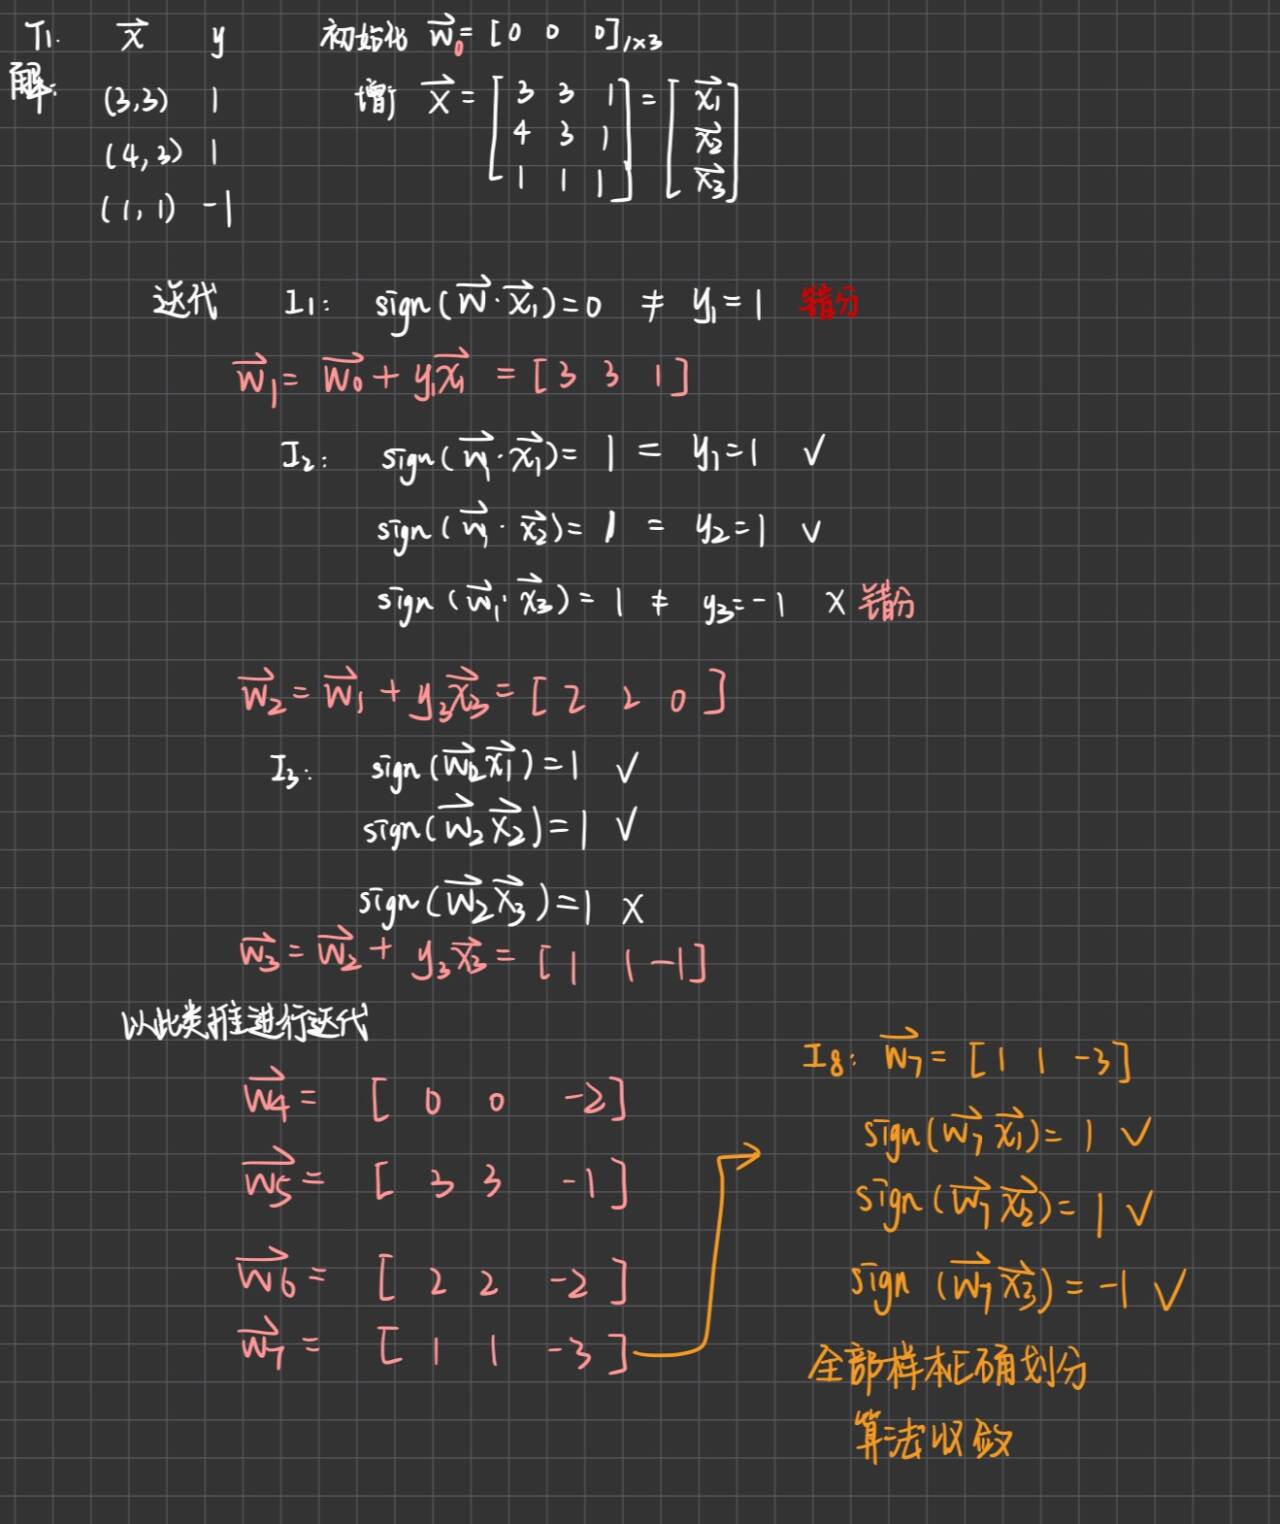 T1. x⃗ y 初始化 w⃗₀ = [0 0 0]₁ₓ₃
解: (3,3) 1 增广 X⃗ = [3 3 1 = [x⃗₁
(4,3) 1 4 3 1 x⃗₂
(1,1) -1 1 1 1] x⃗₃]
迭代 I₁: sign(w⃗·x⃗₁)=0 ≠ y₁=1 错分
w⃗₁ = w⃗₀ + y₁x⃗₁ = [3 3 1]
I₂: sign(w⃗₁·x⃗₁)= 1 = y₁=1 ✓
sign(w⃗₁·x⃗₂)= 1 = y₂=1 ✓
sign(w⃗₁·x⃗₃)= 1 ≠ y₃=-1 × 错分
w⃗₂ = w⃗₁ + y₃x⃗₃ = [2 2 0]
I₃: sign(w⃗₂x⃗₁)=1 ✓
sign(w⃗₂x⃗₂)=1 ✓
sign(w⃗₂x⃗₃)=1 ×
w⃗₃ = w⃗₂ + y₃x⃗₃ = [1 1 -1]
以此类推进行迭代
w⃗₄ = [0 0 -2]
w⃗₅ = [3 3 -1]
w⃗₆ = [2 2 -2]
w⃗₇ = [1 1 -3]
I₈: w⃗₇ = [1 1 -3]
sign(w⃗₇x⃗₁)= 1 ✓
sign(w⃗₇x⃗₂)= 1 ✓
sign(w⃗₇x⃗₃)= -1 ✓
全部样本正确划分
算法收敛